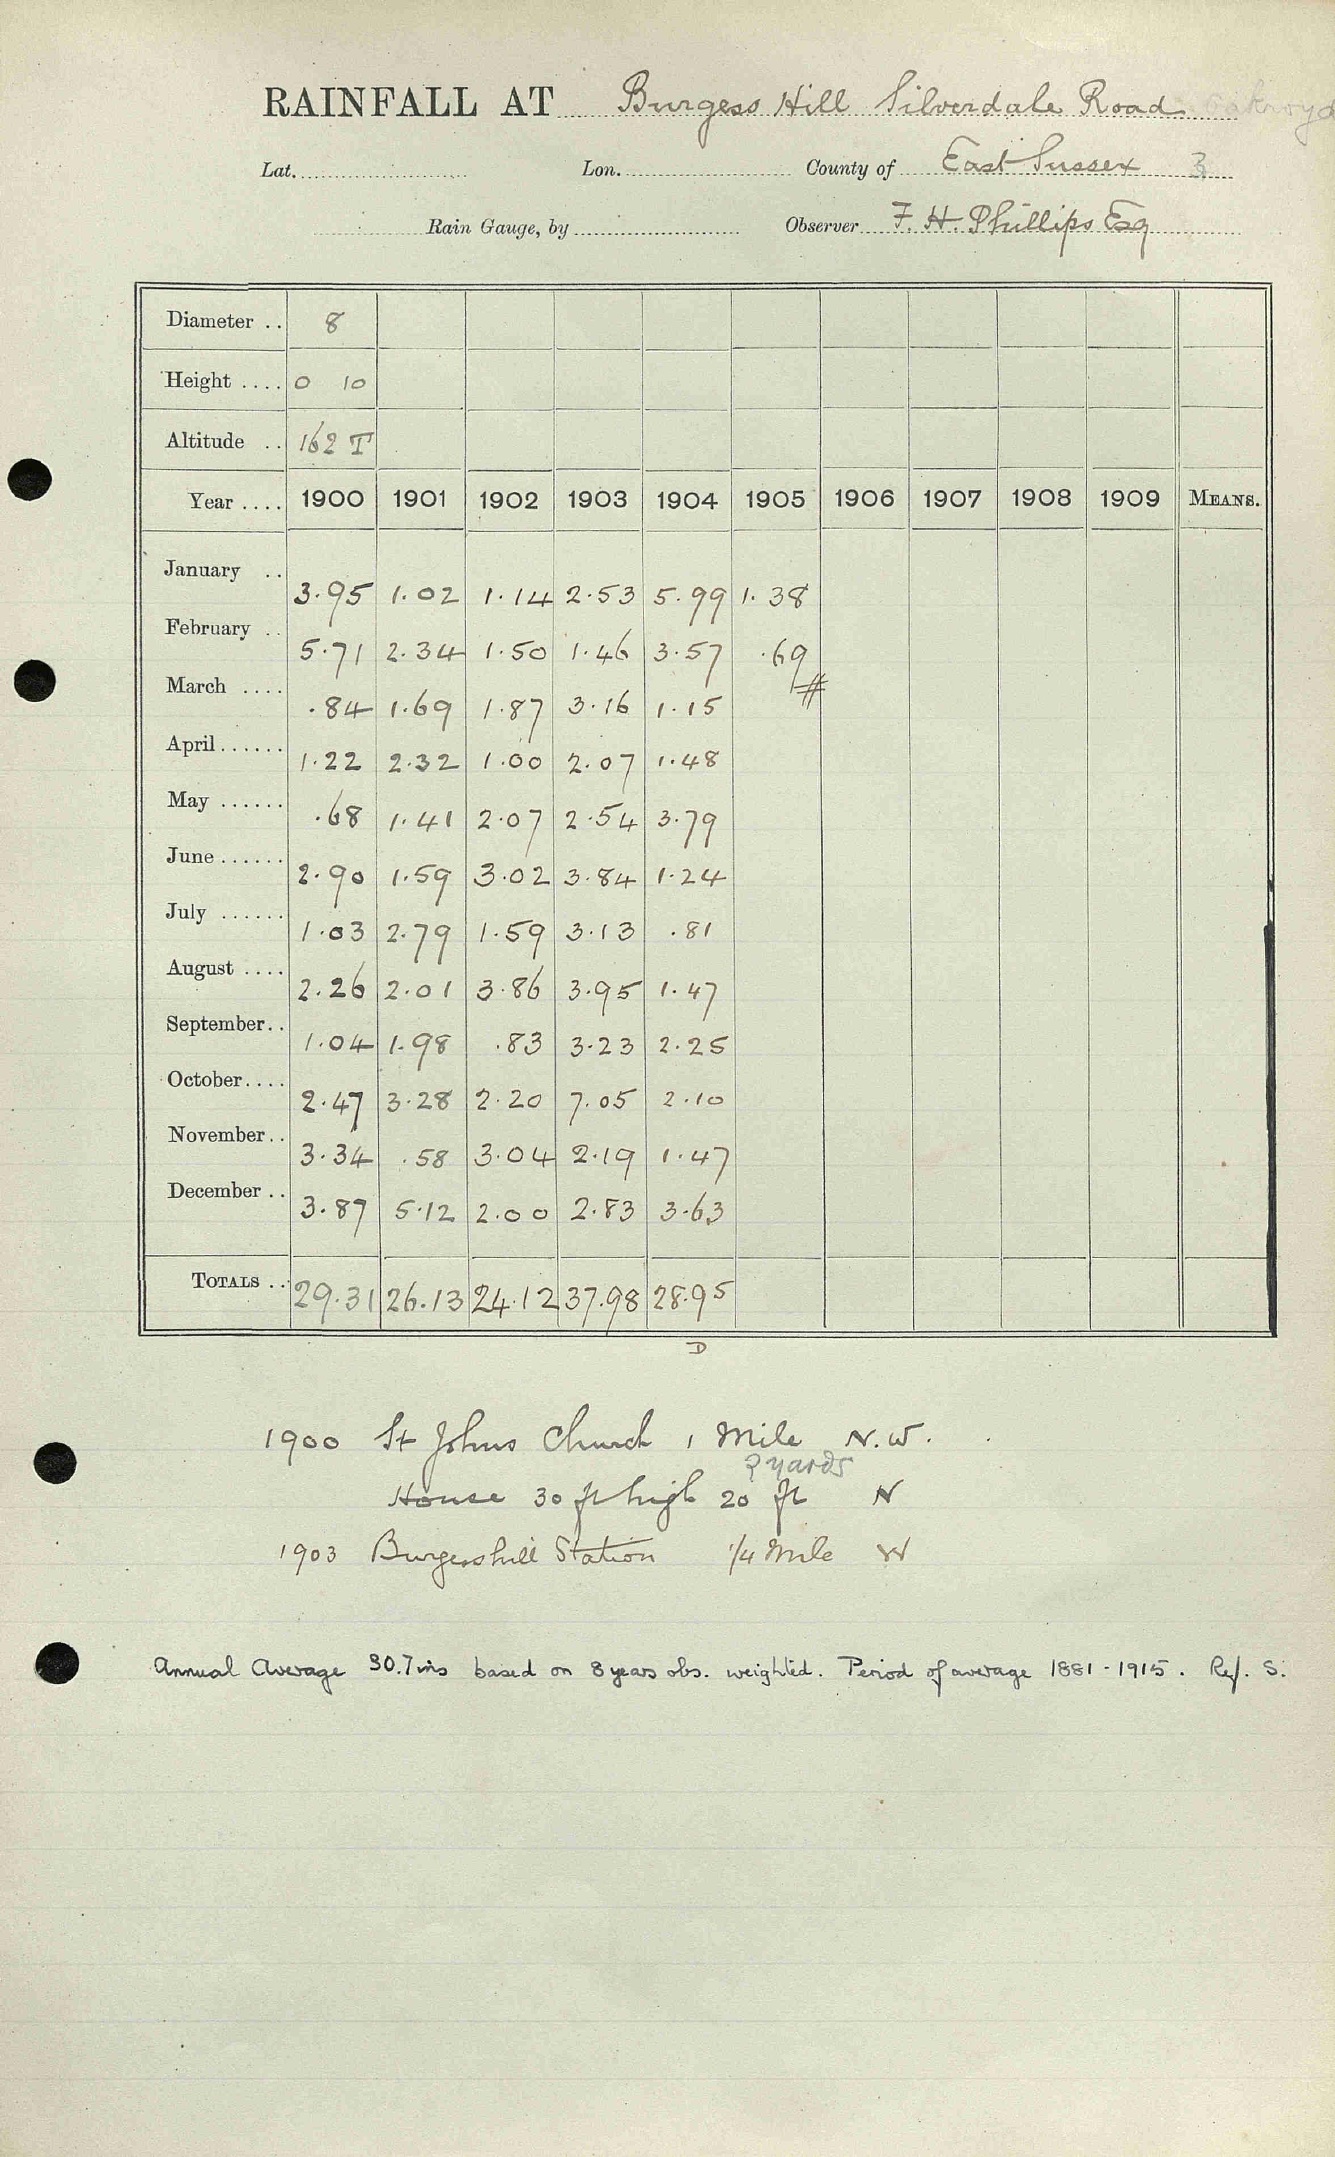 RAINFALL AT Burgess Hill Silverdale Road Oakroyd
Lat. Lon. County of East Sussex 3
Rain Gauge, by Observer F. H. Phillips Esq
Diameter .. 8
Height .... 0 10
Altitude .. 162 T
Year .... 1900 1901 1902 1903 1904 1905 1906 1907 1908 1909 MEANS.
January .. 3.95 1.02 1.14 2.53 5.99 1.38
February .. 5.71 2.34 1.50 1.46 3.57 .69
March .... .84 1.69 1.87 3.16 1.15 #
April ...... 1.22 2.32 1.00 2.07 1.48
May ...... .68 1.41 2.07 2.54 3.79
June ...... 2.90 1.59 3.02 3.84 1.24
July ...... 1.03 2.79 1.59 3.13 .81
August .... 2.26 2.01 3.86 3.95 1.47
September .. 1.04 1.98 .83 3.23 2.25
October .... 2.47 3.28 2.20 7.05 2.10
November .. 3.34 .58 3.04 2.19 1.47
December .. 3.87 5.12 2.00 2.83 3.63
TOTALS .. 29.31 26.13 24.12 37.98 28.95
D
1900 St Johns Church 1 Mile N.W.
? yards
House 30 ft high 20 ft N
1903 Burgesshill Station 1/4 Mile W
Annual Average 30.7 ins based on 8 years obs. weighted. Period of average 1881-1915. Ref. S.